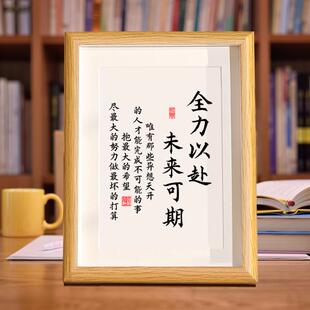 全力以赴
未来可期
唯有那些异想天开
的人才能完成不可能的事
抱最大的希望
尽最大的努力做最坏的打算